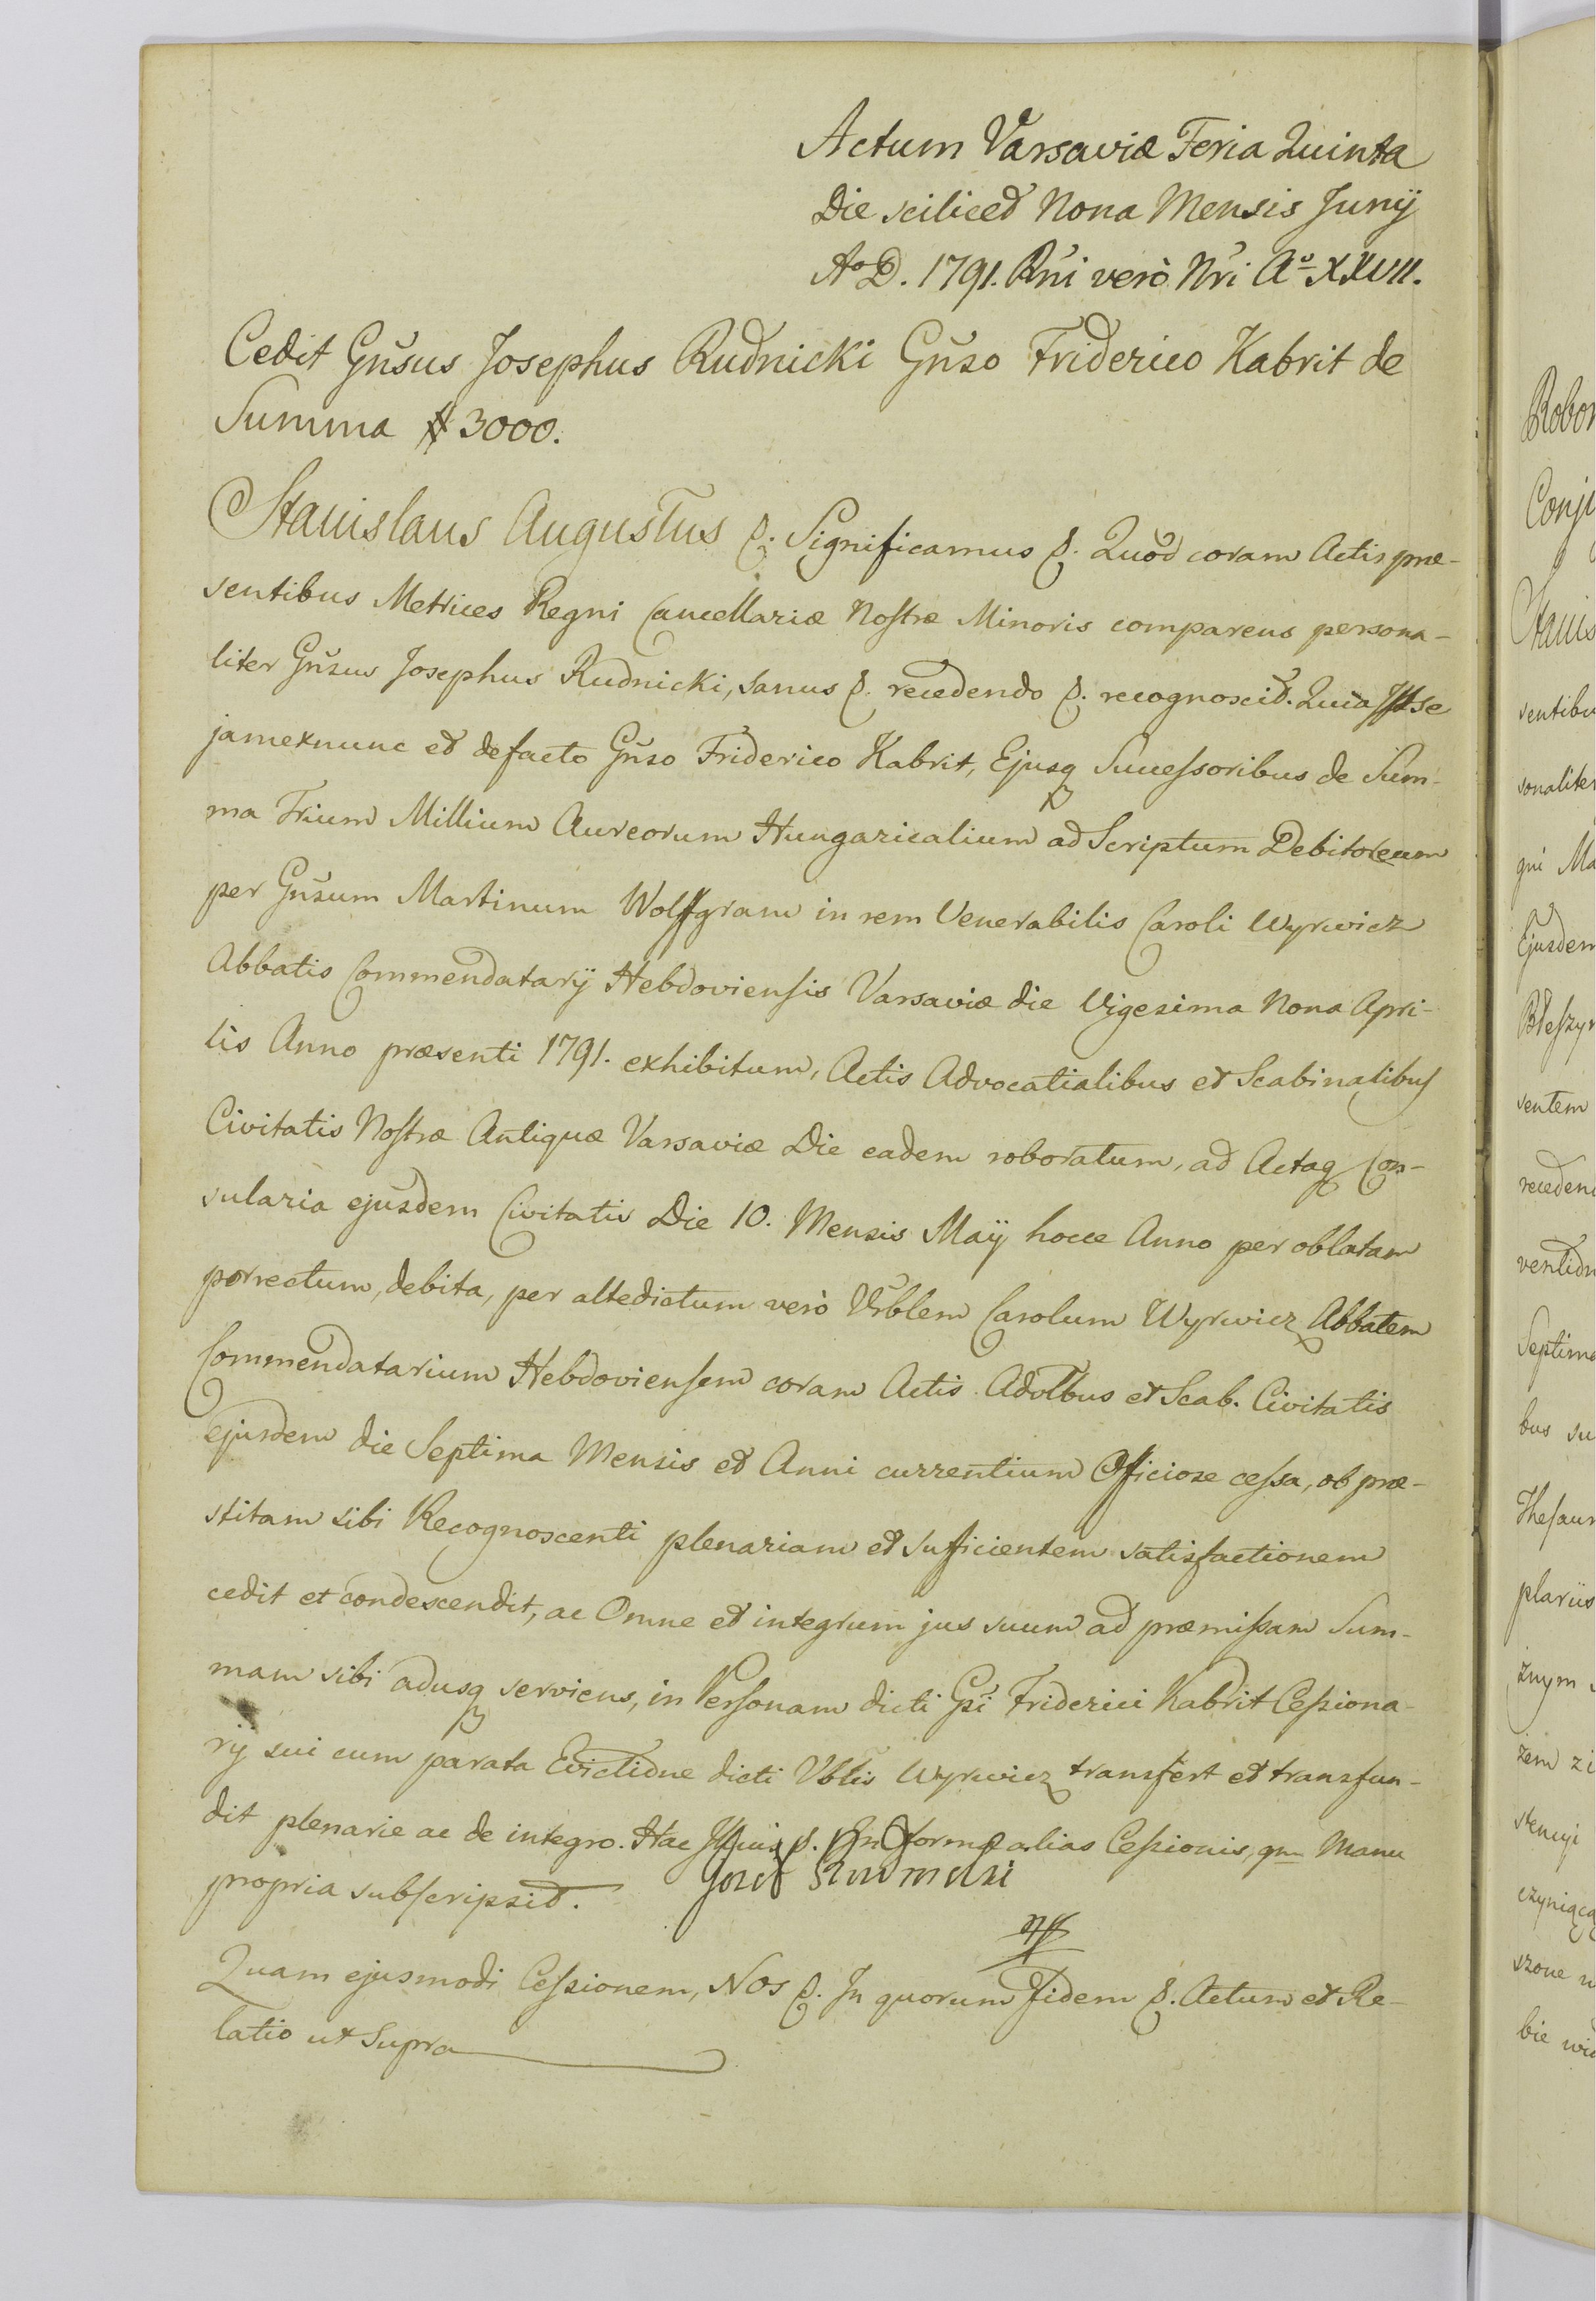 Actum Varsaviæ Feria Quinta
Die scilicet Nona Mensis Junÿ
Aº D. 1791. Rñi verò Nri Aº XXVII.
Cedit Gñsus Josephus Rudnicki Gñso Friderico Kabrit de
Summa # 3000.
Stanislaus Augustus &. Significamus &. Quòd coram Actis præ-
sentibus Metrices Regni Cancellariæ Nostræ Minoris comparens persona-
liter Gñsus Josephus Rudnicki, sanus &. recedendo &. recognoscit. Quia Ipse
jamexnunc et defacto Gñso Friderico Kabrit, Ejusq Successoribus de Sum-
ma Trium Millium Aureorum Hungaricalium ad Scriptum Debitoreum
per Gñsum Martinum Wolffgram in rem Venerabilis Caroli Wyrwicz
Abbatis Commendatarÿ Hebdoviensis Varsaviæ die Vigesima Nona Apri-
lis Anno præsenti 1791. exhibitum, Actis Advocatialibus et Scabinalibus
Civitatis Nostræ Antiquæ Varsaviæ Die eadem roboratum, ad Actaq Con-
sularia ejusdem Civitatis Die 10. Mensis Maÿ hocce Anno per oblatam
porrectum, debita, per altedictum verò Vrblem Carolum Wyrwicz Abbatem
Commendatarium Hebdoviensem coram Actis Adołbus et Scab. Civitatis
ejusdem die Septima Mensis et Anni currentium Officiose cessa, ob præ-
stitam sibi Recognoscenti plenariam et sufficientem satisfactionem
cedit et condescendit, ac Omne et integrum jus suum ad præmissam Sum-
mam sibi adusq serviens, in Personam dicti Gsi Friderici Kabrit Cessiona-
rÿ sui cum parata Evictione dicti Vblis Wyrwicz transfert et transfun-
dit plenarie ac de integro. Hac Ipsius &. In forma alias Cessionis, qm Manu
propria subscripsit. Jozef
mp
Quam ejusmodi Cessionem, Nos &. In quorum Fidem &. Actum et Re-
latio ut Supra
Robor
Conju
Stanis
sentibu
sonaliter
gni Ma
Ejusdem
Błeszyn
sentem
recedend
Septima
bus su
Thesaur
plariis
żnym
zem zi
stencyi
czyniącą
szone w
bie wid